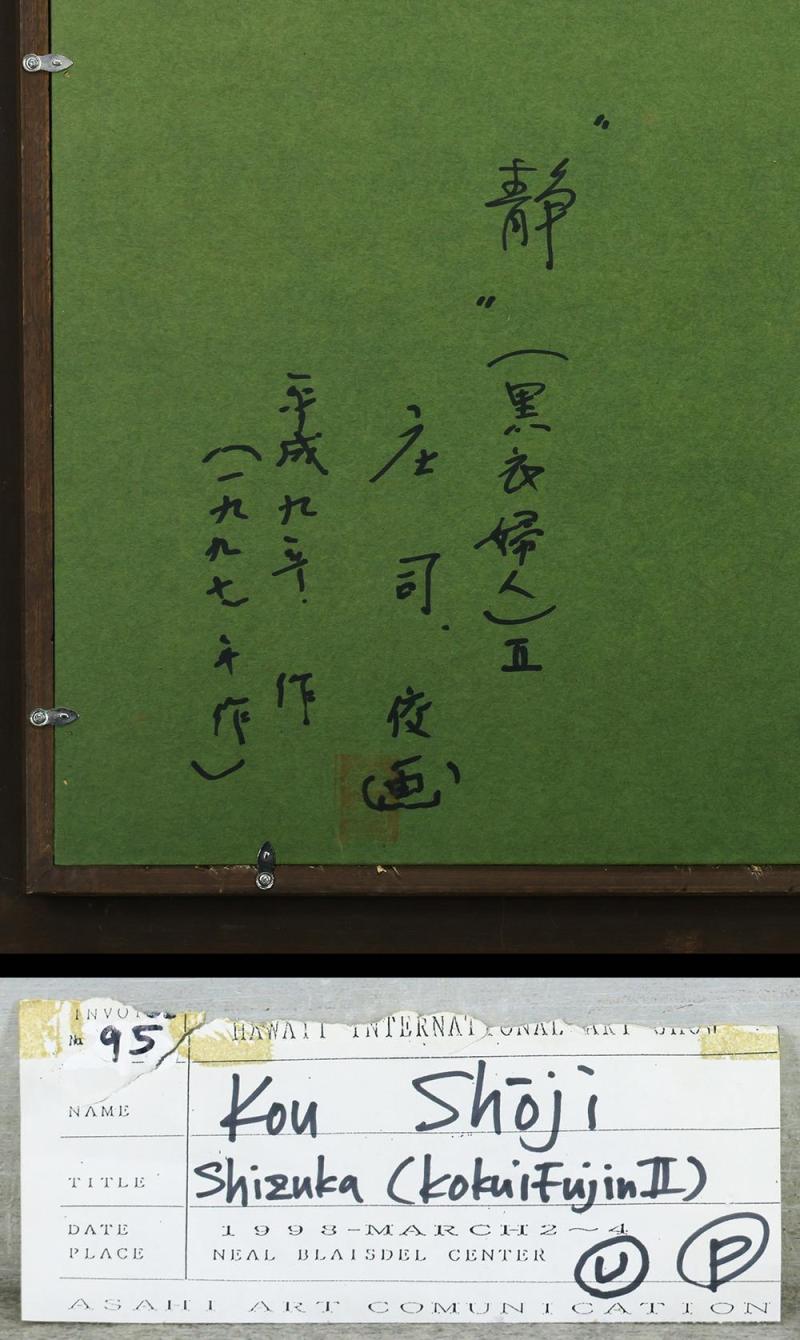 〃静〃(黒衣婦人)Ⅱ
庄司.佼(画)
平成九年.作
(一九九七年作)
INVOICE
No. 95
HAWAII INTERNATIONAL ART SHOW
NAME Kou Shōji
TITLE Shizuka (KokuiFujinⅡ)
DATE 1998-MARCH2~4
PLACE NEAL BLAISDEL CENTER
U P
ASAHI ART COMUNICATION